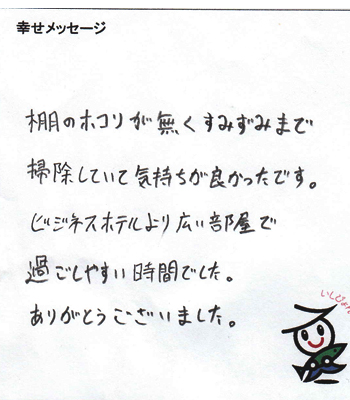 幸せメッセージ
棚のホコリが無くすみずみまで
掃除していて気持ちが良かったです。
ビジネスホテルより広い部屋で
過ごしやすい時間でした。
ありがとうございました。